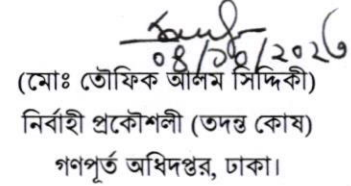 ০৪/০৬/২০২৬
(মোঃ তৌফিক আলম সিদ্দিকী)
নির্বাহী প্রকৌশলী (তদন্ত কোষ)
গণপূর্ত অধিদপ্তর, ঢাকা।